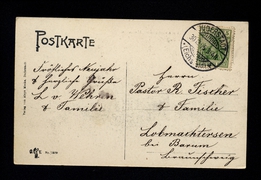 POSTKARTE
Fröhliches Neujahr
& herzliche Grüße
L. v. Wehren
& Familie
Herrn
Pastor R. Fischer
& Familie
Lobmachtersen
bei Barum
Braunschweig